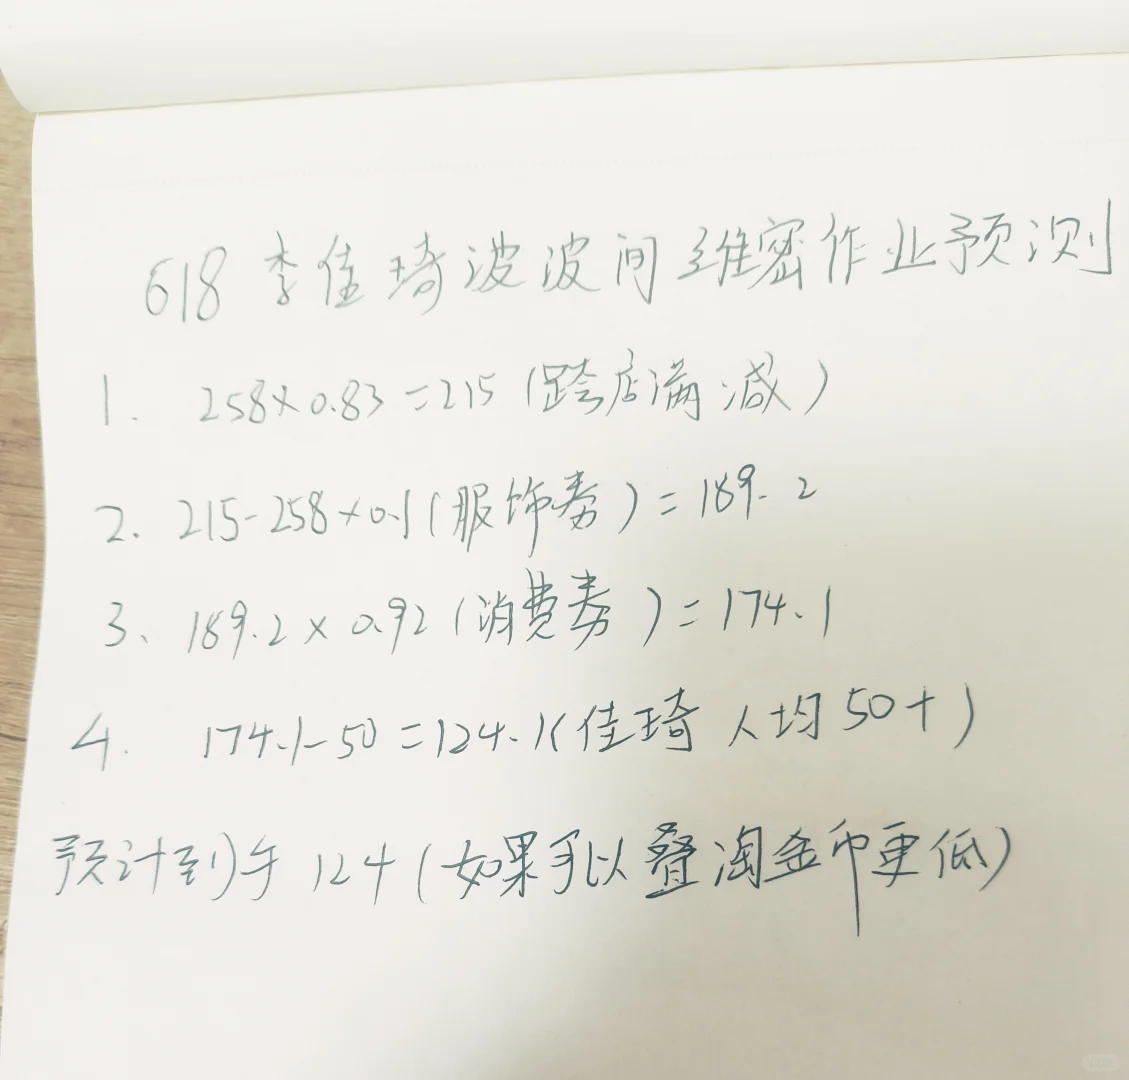 618 李佳琦波波间维密作业预测
1. 258×0.83=215(跨店满减)
2. 215-258×0.1(服饰券)=189.2
3、189.2×0.92(消费券)=174.1
4. 174.1-50=124.1(佳琦人均50+)
预计到手124(如果可以叠淘金币更低)